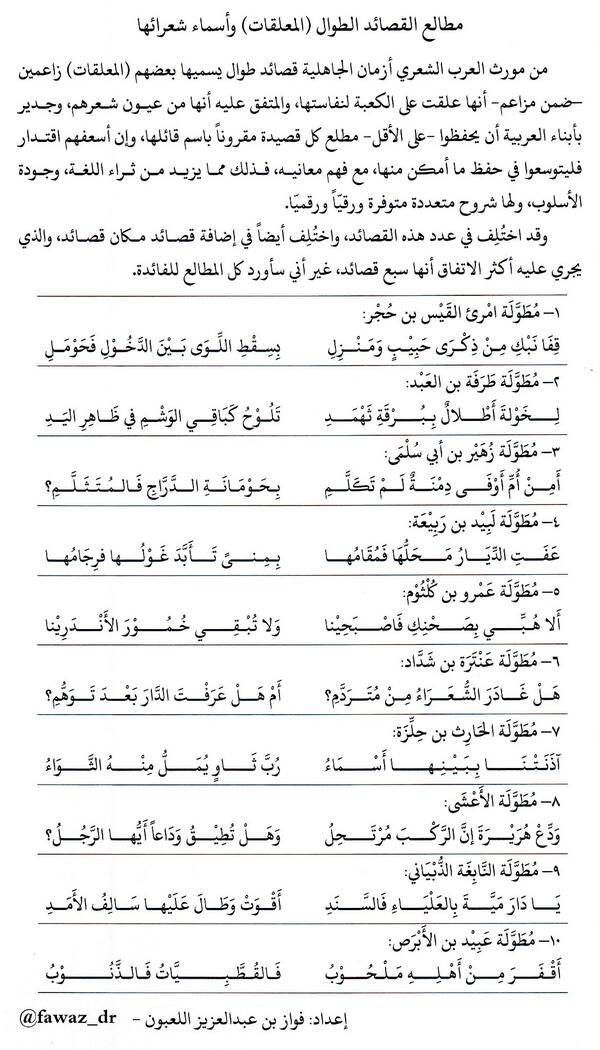 مطالع القصائد الطوال (المعلقات) وأسماء شعرائها
من مورث العرب الشعري أزمان الجاهلية قصائد طوال يسميها بعضهم (المعلقات) زاعمين
-ضمن مزاعم- أنها علقت على الكعبة لنفاستها، والمتفق عليه أنها من عيون شعرهم، وجدير
بأبناء العربية أن يحفظوا -على الأقل- مطلع كل قصيدة مقروناً باسم قائلها، وإن أسعفهم اقتدار
فليتوسعوا في حفظ ما أمكن منها، مع فهم معانيه، فذلك مما يزيد من ثراء اللغة، وجودة
الأسلوب، ولها شروح متعددة متوفرة ورقيّاً ورقميّا.
وقد اختُلِف في عدد هذه القصائد، واختُلِف أيضاً في إضافة قصائد مكان قصائد، والذي
يجري عليه أكثر الاتفاق أنها سبع قصائد، غير أني سأورد كل المطالع للفائدة.
١- مُطَوَّلَة امْرِئ القَيْس بن حُجْر:
قِفَا نَبْكِ مِنْ ذِكْرَى حَبِيْبٍ وَمَنْزِلِ بِسِقْطِ اللِّوَى بَيْنَ الدَّخُوْلِ فَحَوْمَلِ
٢- مُطَوَّلَة طَرَفَة بن العَبْد:
لِخَوْلَةَ أَطْلالٌ بِبُرْقَةِ ثَهْمَدِ تَلُوْحُ كَبَاقِي الوَشْمِ فِي ظَاهِرِ اليَدِ
٣- مُطَوَّلَة زُهَيْر بن أبي سُلْمَى:
أَمِنْ أُمِّ أَوْفَى دِمْنَةٌ لَمْ تَكَلَّمِ بِحَوْمَانَةِ الدَّرَّاجِ فَالمُتَثَلَّمِ؟
٤- مُطَوَّلَة لَبِيْد بن رَبِيْعَة:
عَفَتِ الدِّيَارُ مَحَلُّهَا فَمُقَامُها بِمِنىً تَأَبَّدَ غَوْلُها فَرِجَامُها
٥- مُطَوَّلَة عَمْرو بن كُلْثُوْم:
أَلا هُبِّي بِصَحْنِكِ فَاصْبَحِيْنا وَلا تُبْقِي خُمُوْرَ الأَنْدَرِيْنا
٦- مُطَوَّلَة عَنْتَرَة بن شَدَّاد:
هَلْ غَادَرَ الشُّعَرَاءُ مِنْ مُتَرَدَّمِ؟ أَمْ هَلْ عَرَفْتَ الدَّارَ بَعْدَ تَوَهُّمِ؟
٧- مُطَوَّلَة الحَارِث بن حِلِّزَة:
آذَنَتْنَا بِبَيْنِهَا أَسْمَاءُ رُبَّ ثَاوٍ يُمَلُّ مِنْهُ الثَّوَاءُ
٨- مُطَوَّلَة الأَعْشَى:
وَدِّعْ هُرَيْرَةَ إِنَّ الرَّكْبَ مُرْتَحِلُ وَهَلْ تُطِيْقُ وَدَاعاً أَيُّها الرَّجُلُ؟
٩- مُطَوَّلَة النَّابِغَة الذُّبْيَاني:
يَا دَارَ مَيَّةَ بِالعَلْيَاءِ فَالسَّنَدِ أَقْوَتْ وَطَالَ عَلَيْها سَالِفُ الأَمَدِ
١٠- مُطَوَّلَة عَبِيْد بن الأَبْرَص:
أَقْفَرَ مِنْ أَهْلِهِ مَلْحُوْبُ فَالقُطَّبِيَّاتُ فَالذَّنُوْبُ
إعداد: فواز بن عبدالعزيز اللعبون - @fawaz_dr